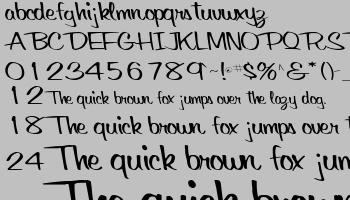 abcdefghijklmnopqrstuvwxyz
ABCDEFGHIJKLMNOPQRST
0123456789~!@#$%^&*()-
12 The quick brown fox jumps over the lazy dog.
18 The quick brown fox jumps over t
24 The quick brown fox jum
The quick brown